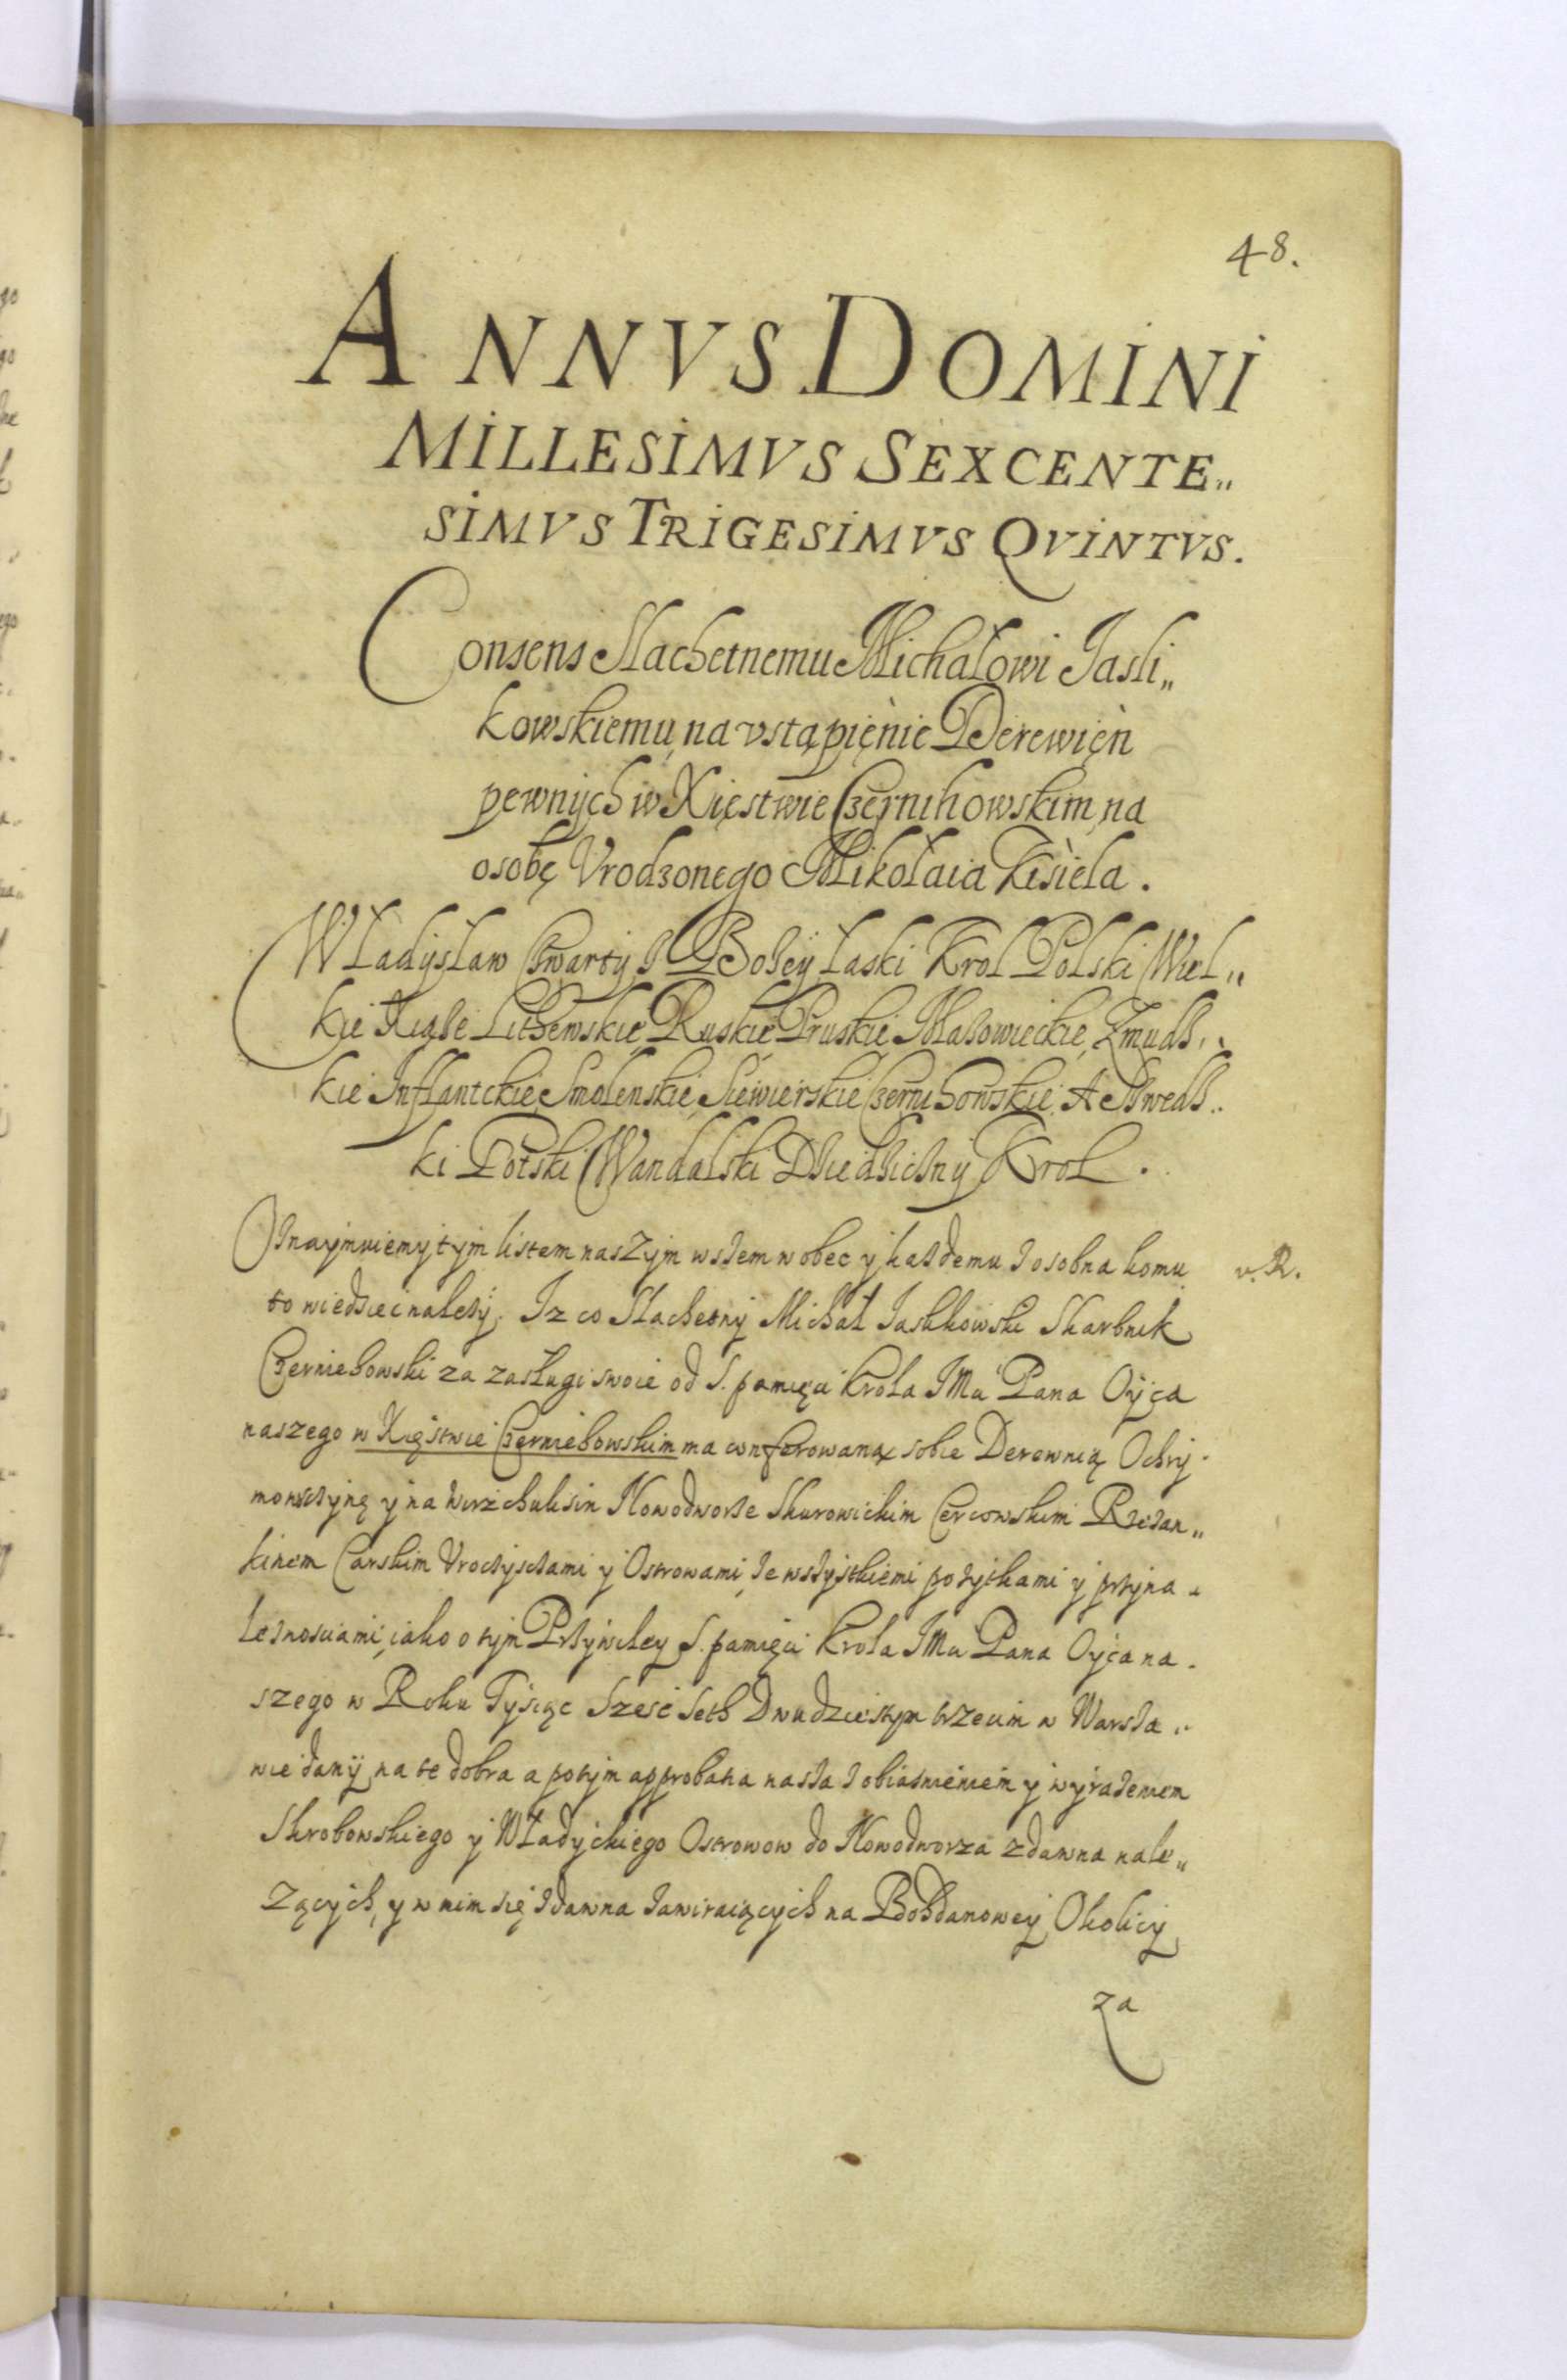 48.
ANNVS DOMINI
MILLESIMVS SEXCENTE„
SIMVS TRIGESIMVS QVINTVS.
Consens Slachetnemu Michałowi Jasli„
kowskiemu na vstąpięnie Derewięn
pewnych w Xięstwie Czernihowskim na
osobę Vrodzonego Mikołaia Kisiela.
Władysław Czwarty Z Bożey łaski Krol Polski Wiel„
kie Xiąże Lithewskie Ruskie Pruskie Mazowieckie Zmudz„
kie Inflantckie Smolenskie Siewierskie Czernihowskie A Szwedz„
ki Gotski Wandalski Dziedziczny Krol.
Oznaymuiemy tym listem naszym wszem w obec y każdemu z osobna komu v. R.
to wiedziec należy. Iz co Slachetny Michał Jaslikowski Skarbnik
Czerniehowski za zasługi swoie od S. pamięci Krola IMci Pana Oyca
naszego w Xięstwie Czerniehowskim ma conferowaną sobie Derewnią Ochry„
monsczyną y na Nowodworze Skurowickim Rzezan„
kinem Carskim Vroczysczami y Ostrowami ze wszystkiemi pożytkami y przyna„
leżnosciami, iako o tym Przywiley S. pamięci Krola IMci Pana Oyca na„
szego w Roku Tysiąc Szesc Seth Dwudziestym trzecim w Warsza„
wie dany na te dobra a potym approbata nasza z obiasnieniem y wyrażeniem
Skrobowskiego y Władyckiego Ostrowow do Nowodworza zdawna nale„
zących, y w nim się zdawna zawieraiących na Bohdanowey Okolicy
za